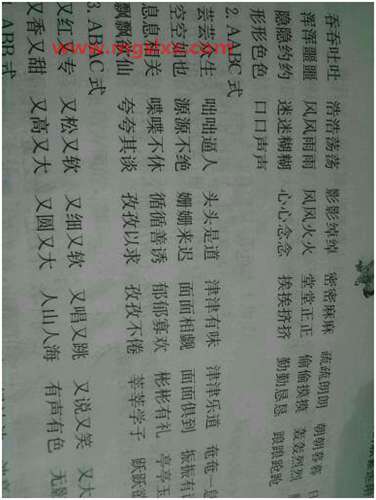 吞吞吐吐 浩浩荡荡 影影绰绰 密密麻麻 疏疏朗朗 朝朝暮暮
浑浑噩噩 风风雨雨 风风火火 堂堂正正 偷偷摸摸 轰轰烈烈
隐隐约约 迷迷糊糊 心心念念 挨挨挤挤 勤勤恳恳 踉踉跄跄
形形色色 口口声声
2. AABC 式
芸芸众生 咄咄逼人 头头是道 津津有味 津津乐道 奄奄一
空空如也 源源不绝 姗姗来迟 面面相觑 面面俱到 振振有
息息相关 喋喋不休 循循善诱 郁郁寡欢 彬彬有礼 亭亭玉
飘飘欲仙 夸夸其谈 孜孜以求 孜孜不倦 莘莘学子 跃跃欲
3. ABAC 式
又红又专 又松又软 又细又软 又唱又跳 又说又笑 又大
又香又甜 又高又大 又圆又大 人山人海 有声有色 无影
ABB 式